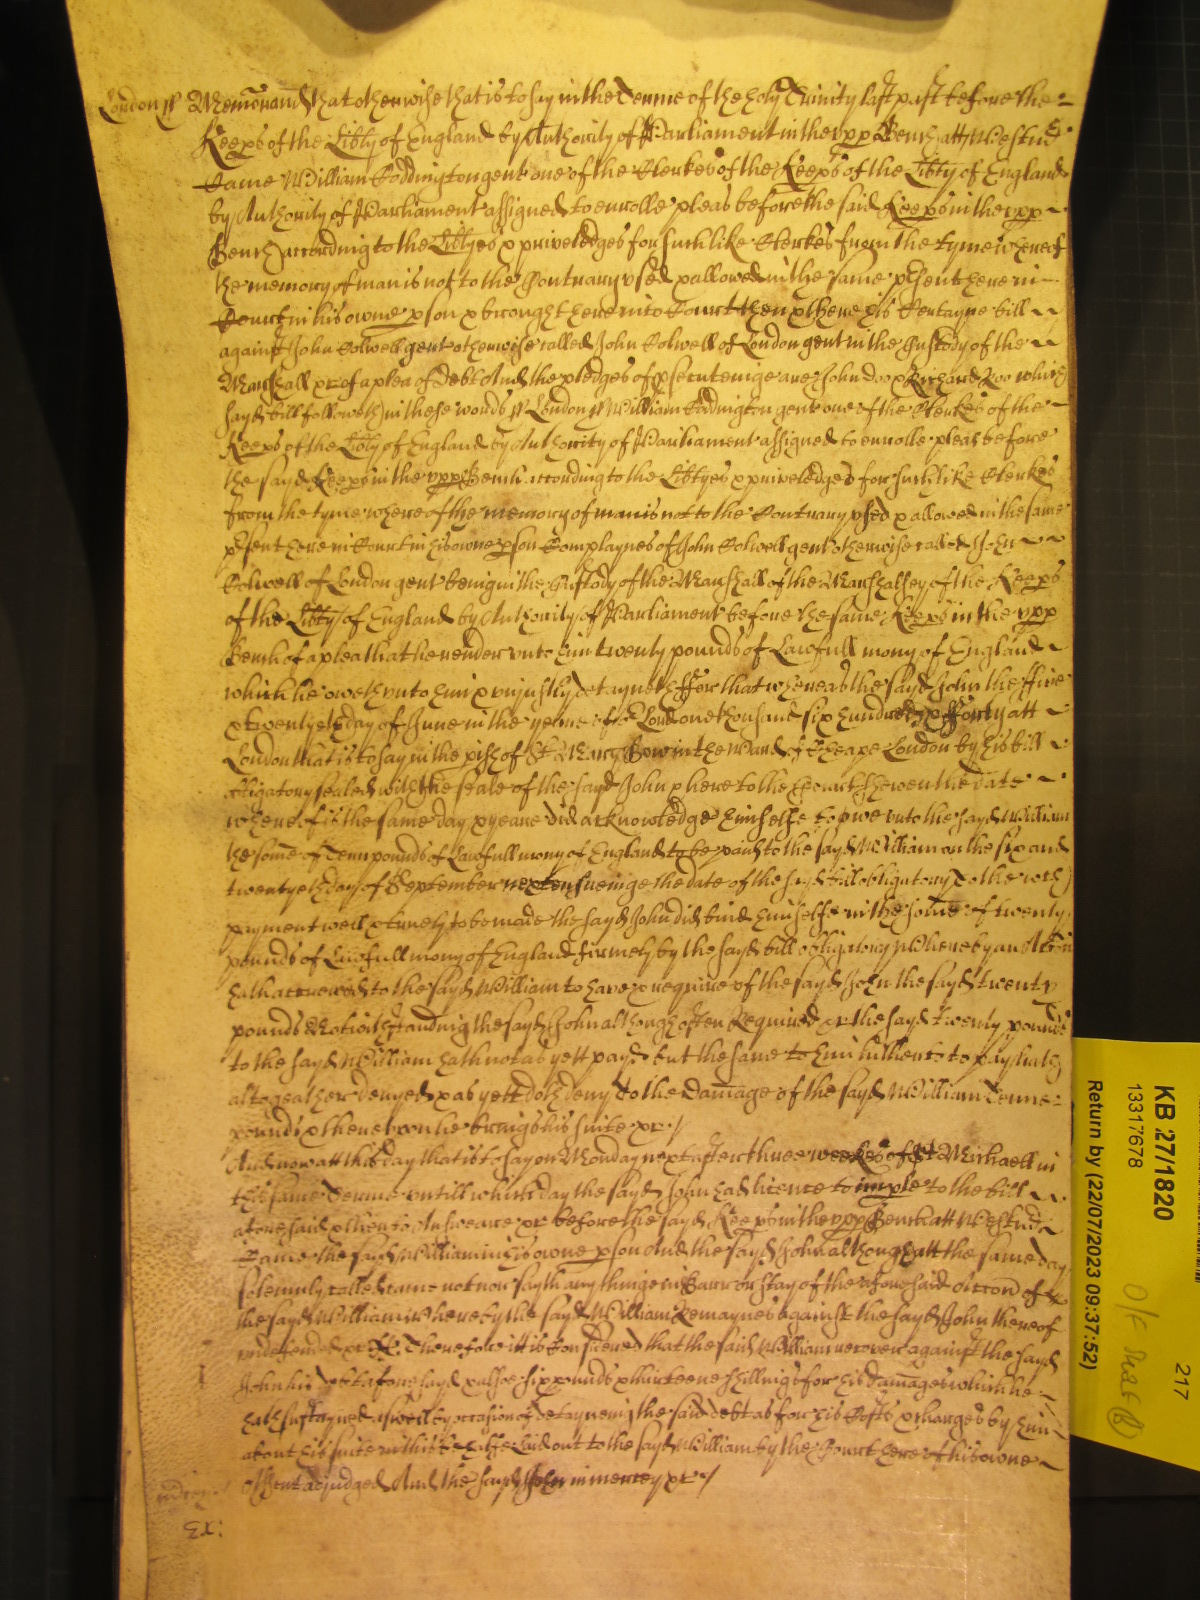 London ss Memorand That otherwise that is to say in the Terme of the holy Trinity last past before the
Keeps of the Libty of England by Authority of Parliament in the upp Bench att Westm
Came William Coddington gent one of the Clerkes of the Keeps of the Libty of England
by Authority of Parliament assigned to enrolle pleas before the said Keeps in the upp
Bench according to the Libtyes & priveledges for such like Clerkes from the tyme whereof
the memory of man is not to the Contrary used & allowed in the same psent here in
Court in his owne pson & brought here into Court then & there his Certayne bill
against John Colwell gent otherwise called John Colwell of London gent in the Custody of the
Marshall &c of a plea of Debt And the pledges of psecuteinge are John doo & Richard Roo which
sayd bill followeth in these words ss London ss William Coddington gent one of the Clerkes of the
Keeps of the Libty of England by Authority of Parliament assigned to enrolle pleas before
the sayd Keeps in the upp Bench according to the Libtyes & priveledges for such like Clerkes
from the tyme whereof the memory of man is not to the Contrary used & allowed in the same
psent here in Court in his owne pson Complaynes of John Colwell gent otherwise called John
Colwell of London gent being in the Custody of the Marshall of the Marshalsey of the Keeps
of the Libty of England by Authority of Parliament before the same Keeps in the upp
Bench of a plea that he render unto him twenty pounds of Lawfull mony of England
which he oweth unto him & unjustly detayneth ffor that whereas the sayd John the ffive
& twentyeth day of June in the yeare of or Lord one thousand six hundred & fforty att
London that is to say in the pish of St Mary Bow in the Ward of Cheape London by his bill
obligatory sealed with the seale of the sayd John & here to the Court shewen the date
whereof is the same day & yeare did acknowledge himselfe to owe unto the sayd William
the some of Tenn pounds of Lawfull mony of England to be paid to the sayd William on the six and
twentyeth day of September next ensueinge the date of the sayd bill obligatory To the wch
payment well & truely to be made the sayd John did bind himselfe in the some of twenty
pounds of Lawfull mony of England firmely by the sayd bill obligatory Whereby an Accon
hath accrewed to the sayd William to have & require of the sayd John the sayd twenty
pounds Notwithstanding the sayd John although often Required &c the sayd Twenty pounds
to the sayd William hath not as yett payd but the same to him hitherto to pay hath
altogeather denyed & as yett doth deny To the damage of the sayd William Tenne
pounds & thereupon he brings his suite &c /
And now att this day that is to say on Monday next after three weekes of St Michaell in
this same Terme untill which day the sayd John had licence to imple to the bill
aforesaid & then to Answeare &c before the sayd Keeps in the upp Bench att Westm
Came the sayd William in his owne pson And the sayd John although att the same day
solemnly called came not nor sayth any thinge in Barr or stay of the aforesaid Accon of
the sayd William Whereby the sayd William Remaynes against the sayd John thereof
undefended &c Therefore itt is Considered that the said William recover against the sayd
John his debt aforesayd & alsoe six pounds & thirteene shillings for his damages which he
hath sustayned aswell by occasion of detayneing the said debt as for his Costs & charges by him
about his suite in this behalfe laid out to the sayd William by the Court here of his owne
Assent adjudged And the sayd John in mercy &c /
Ex:
KB 27/1820
13317678
Return by (22/07/2023 09:37:52)
217